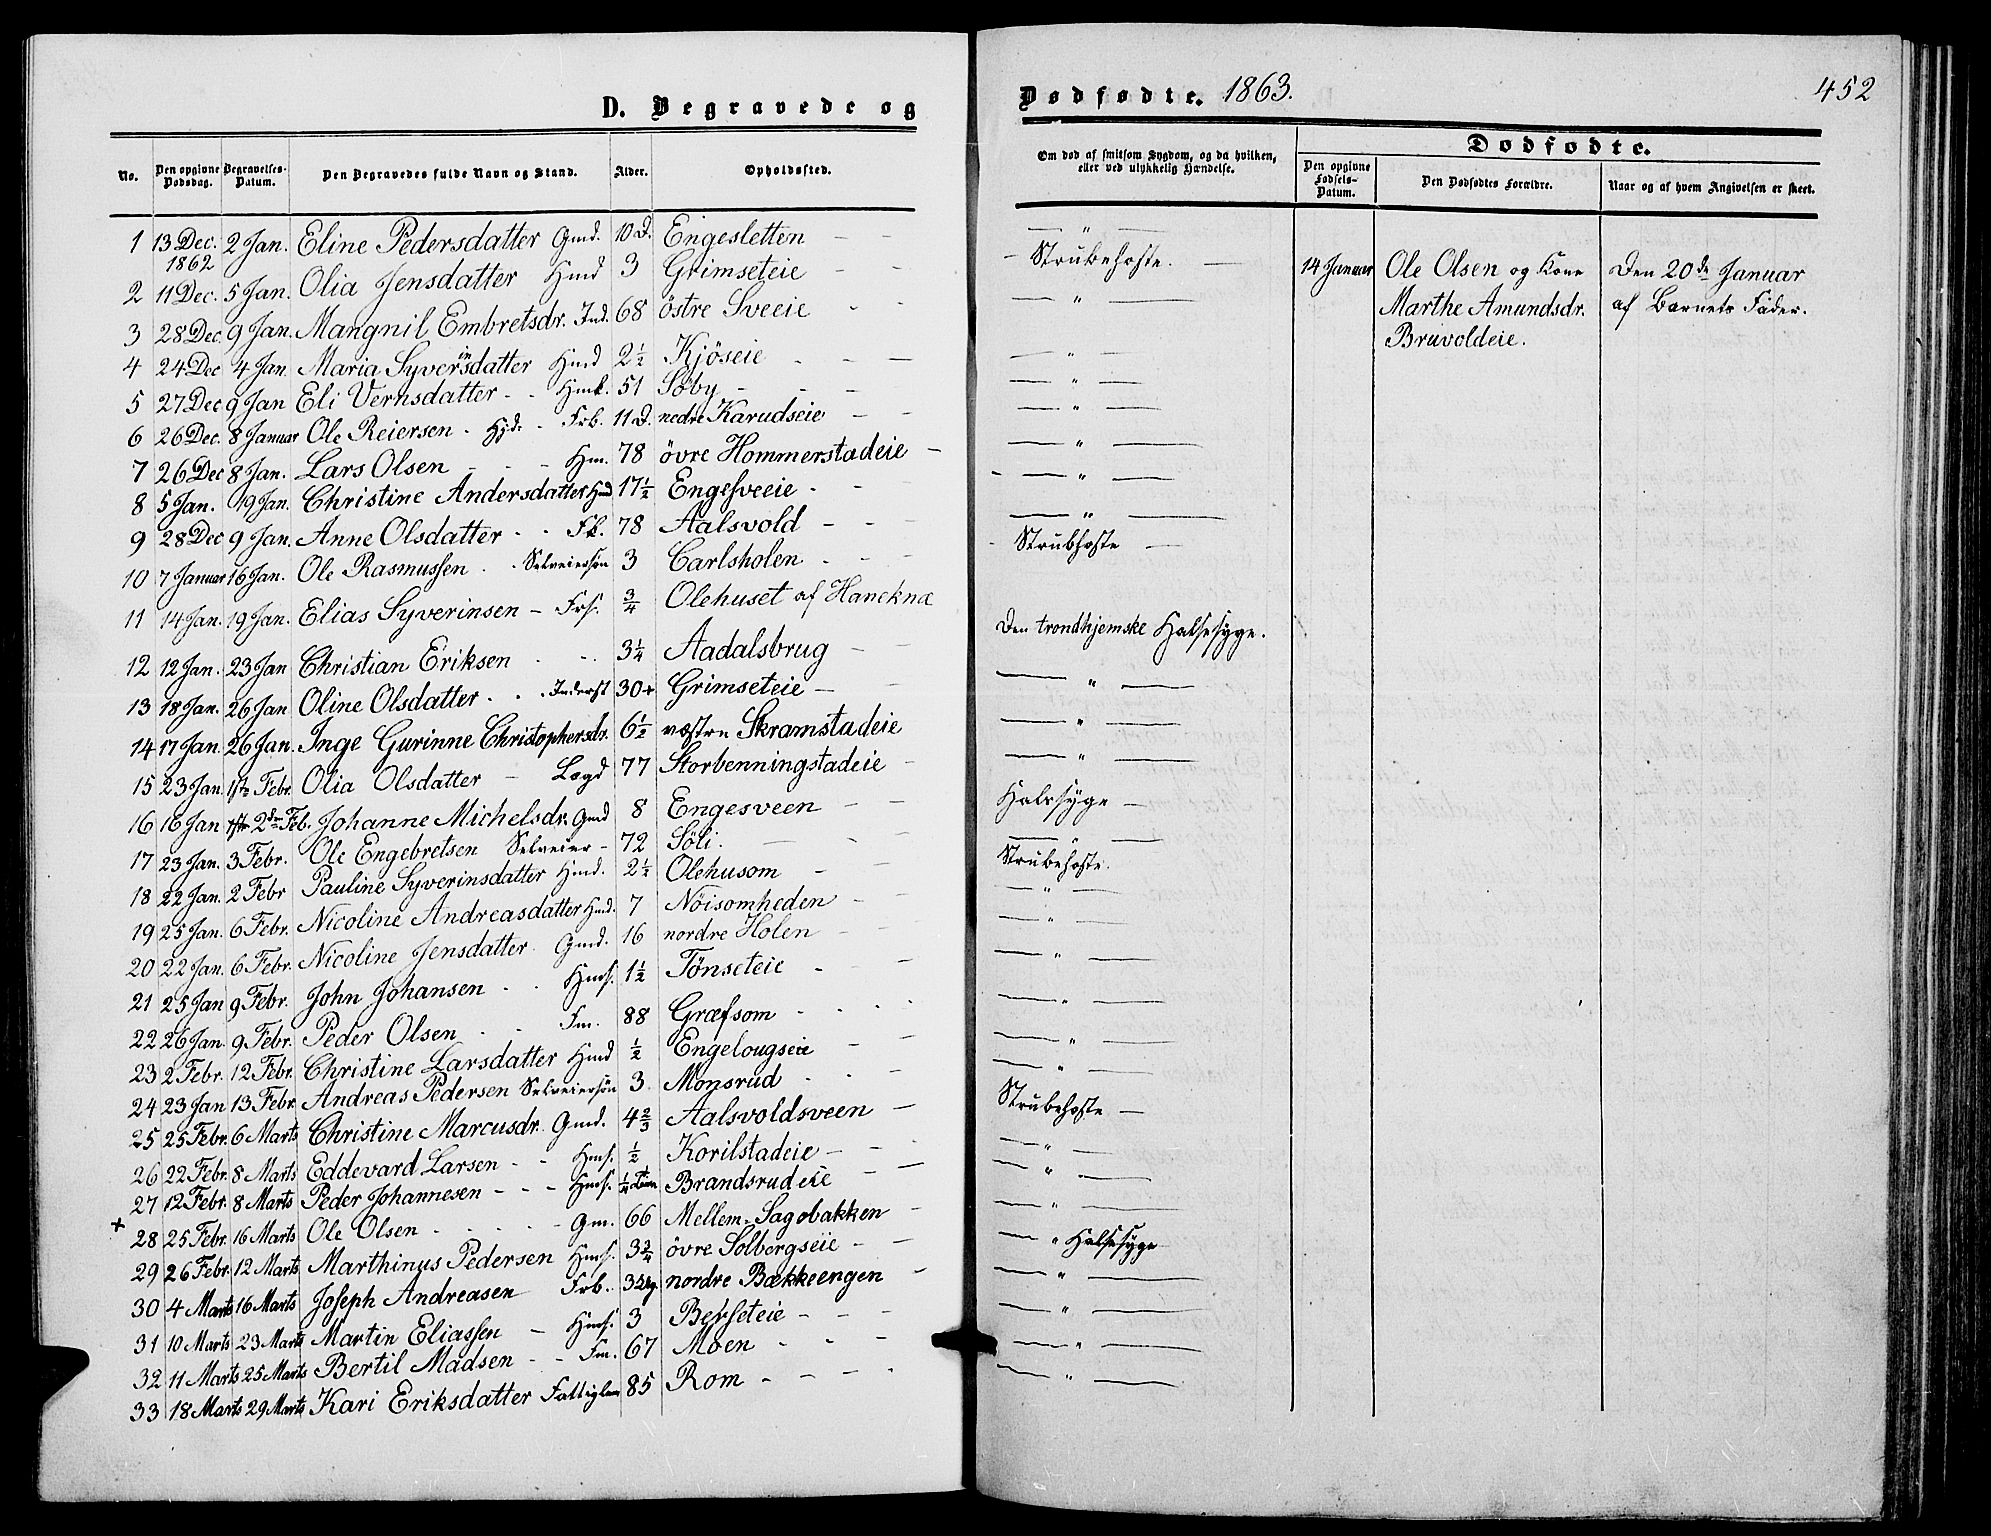 D. Begravede og
No. Den opgivne Dødsdag. Begravelses-Datum. Den Begravedes fulde Navn og Stand. Alder. Opholdssted.
1 13 Dec. 1862 2 Jan. Eline Pedersdatter Gmd. 10 D. Engesletten
2 11 Dec. 5 Jan. Olia Jensdatter Hmd 3 Grimseteie
3 28 Dec. 9 Jan. Mangnil Embretsdr. Ind. 68 östre Sveeie
4 24 Dec 4 Jan. Maria Syverinsdatter Hmd 2½ Kjöseie
5 27 Dec 9 Jan Eli Vernsdatter Hmk. 51 Söby
6 26 Dec. 8 Januar Ole Reiersen Frb. 11 D. nedre Karudseie
7 26 Dec 8 Jan. Lars Olsen Hm. 78 övre Hommerstadeie
8 5 Jan. 19 Jan. Christine Andersdatter Hmd 17½ Engesveeie
9 28 Dec 9 Jan. Anne Olsdatter Fk. 78 Aalsvold
10 7 Januar 16 Jan. Ole Rasmussen Selveiersön 3 Carlsholen
11 14 Jan. 19 Jan. Elias Syverinsen Frs. ¾ Olehuset af Haneknæ
12 12 Jan. 23 Jan Christian Eriksen 3¼ Aadalsbrug
13 18 Jan. 26 Jan Oline Olsdatter Inderst 30 Grimseteie
14 17 Jan. 26 Jan. Inge Gurinne Christophersdr. 6½ vestre Skramstadeie
15 23 Jan. 1ste Febr. Olia Olsdatter Lægd 77 Storbenningstadeie
16 16 Jan 2den Feb. Johanne Michelsdr. Gmd 8 Engesveen
17 23 Jan. 3 Febr. Ole Engebretsen Selveier 72 Söli.
18 22 Jan. 2 Febr Pauline Syverinsdatter Hmd. 2½ Olehusom
19 25 Jan. 6 Febr. Nicoline Andreasdatter Hmd. 7 Nöisomheden
20 22 Jan. 6 Febr. Nicoline Jensdatter Gmd. 16 nordre Holen
21 25 Jan 9 Febr. John Johansen Hms. 1½ Tönseteie
22 26 Jan. 9 Febr. Peder Olsen Fm. 88 Græfsom
23 2 Febr. 12 Febr. Christine Larsdatter Hmd ½ Engelougseie
24 23 Jan 13 Febr. Andreas Pedersen Selveiersön 3 Monsrud
25 25 Febr. 6 Marts Christine Marcusdr. Gmd. 4⅔ Aalsvoldsveen
26 22 Febr. 8 Marts Eddevard Larsen Hms. ½ Korilstadeie
27 12 Febr. 8 Marts Peder Johannesen Hms. ¼ Brandsrudeie
+ 28 25 Febr. 16 Marts Ole Olsen Gm. 66 Mellem-Sagobakken
29 26 Febr. 12 Marts Marthinus Pedersen Hms. 3¾ övre Solbergseie
30 4 Marts 16 Marts Joseph Andreasen Frb. nordre Bækkeengen
31 10 Marts 23 Marts Martin Eliassen Hms. 3 Besseteie
32 11 Marts 25 Marts Bertil Madsen Fm. 67 Moen
33 18 Marts 29 Marts Kari Eriksdatter Fattiglem 85 Rom
Dødfødte. 1863. 452
Om død af smitsom Sygdom, og da hvilken, eller ved ulykkelig Hændelse.
Dødfødte.
Den opgivne Fødsels-Datum. Den Dødfødtes Forældre. Naar og af hvem Angivelsen er skeet.
— " —
Strubehoste.
— " —
— " —
— " —
— " —
— " —
— " —
— " —
Strubhoste
Den trondhjemske Halsesyge.
— " —
— " —
— " —
Halssyge
— " —
Strubehoste.
— " —
— " —
— " —
— " —
— " —
— " —
Strubehoste
— " —
— " —
— " —
— " Halsesyge
— " —
— " —
— " —
— " —
14 Januar Ole Olsen og Kone Den 20de Januar
Marthe Amundsdr. af Barnets Fader.
Bruvoldeie.